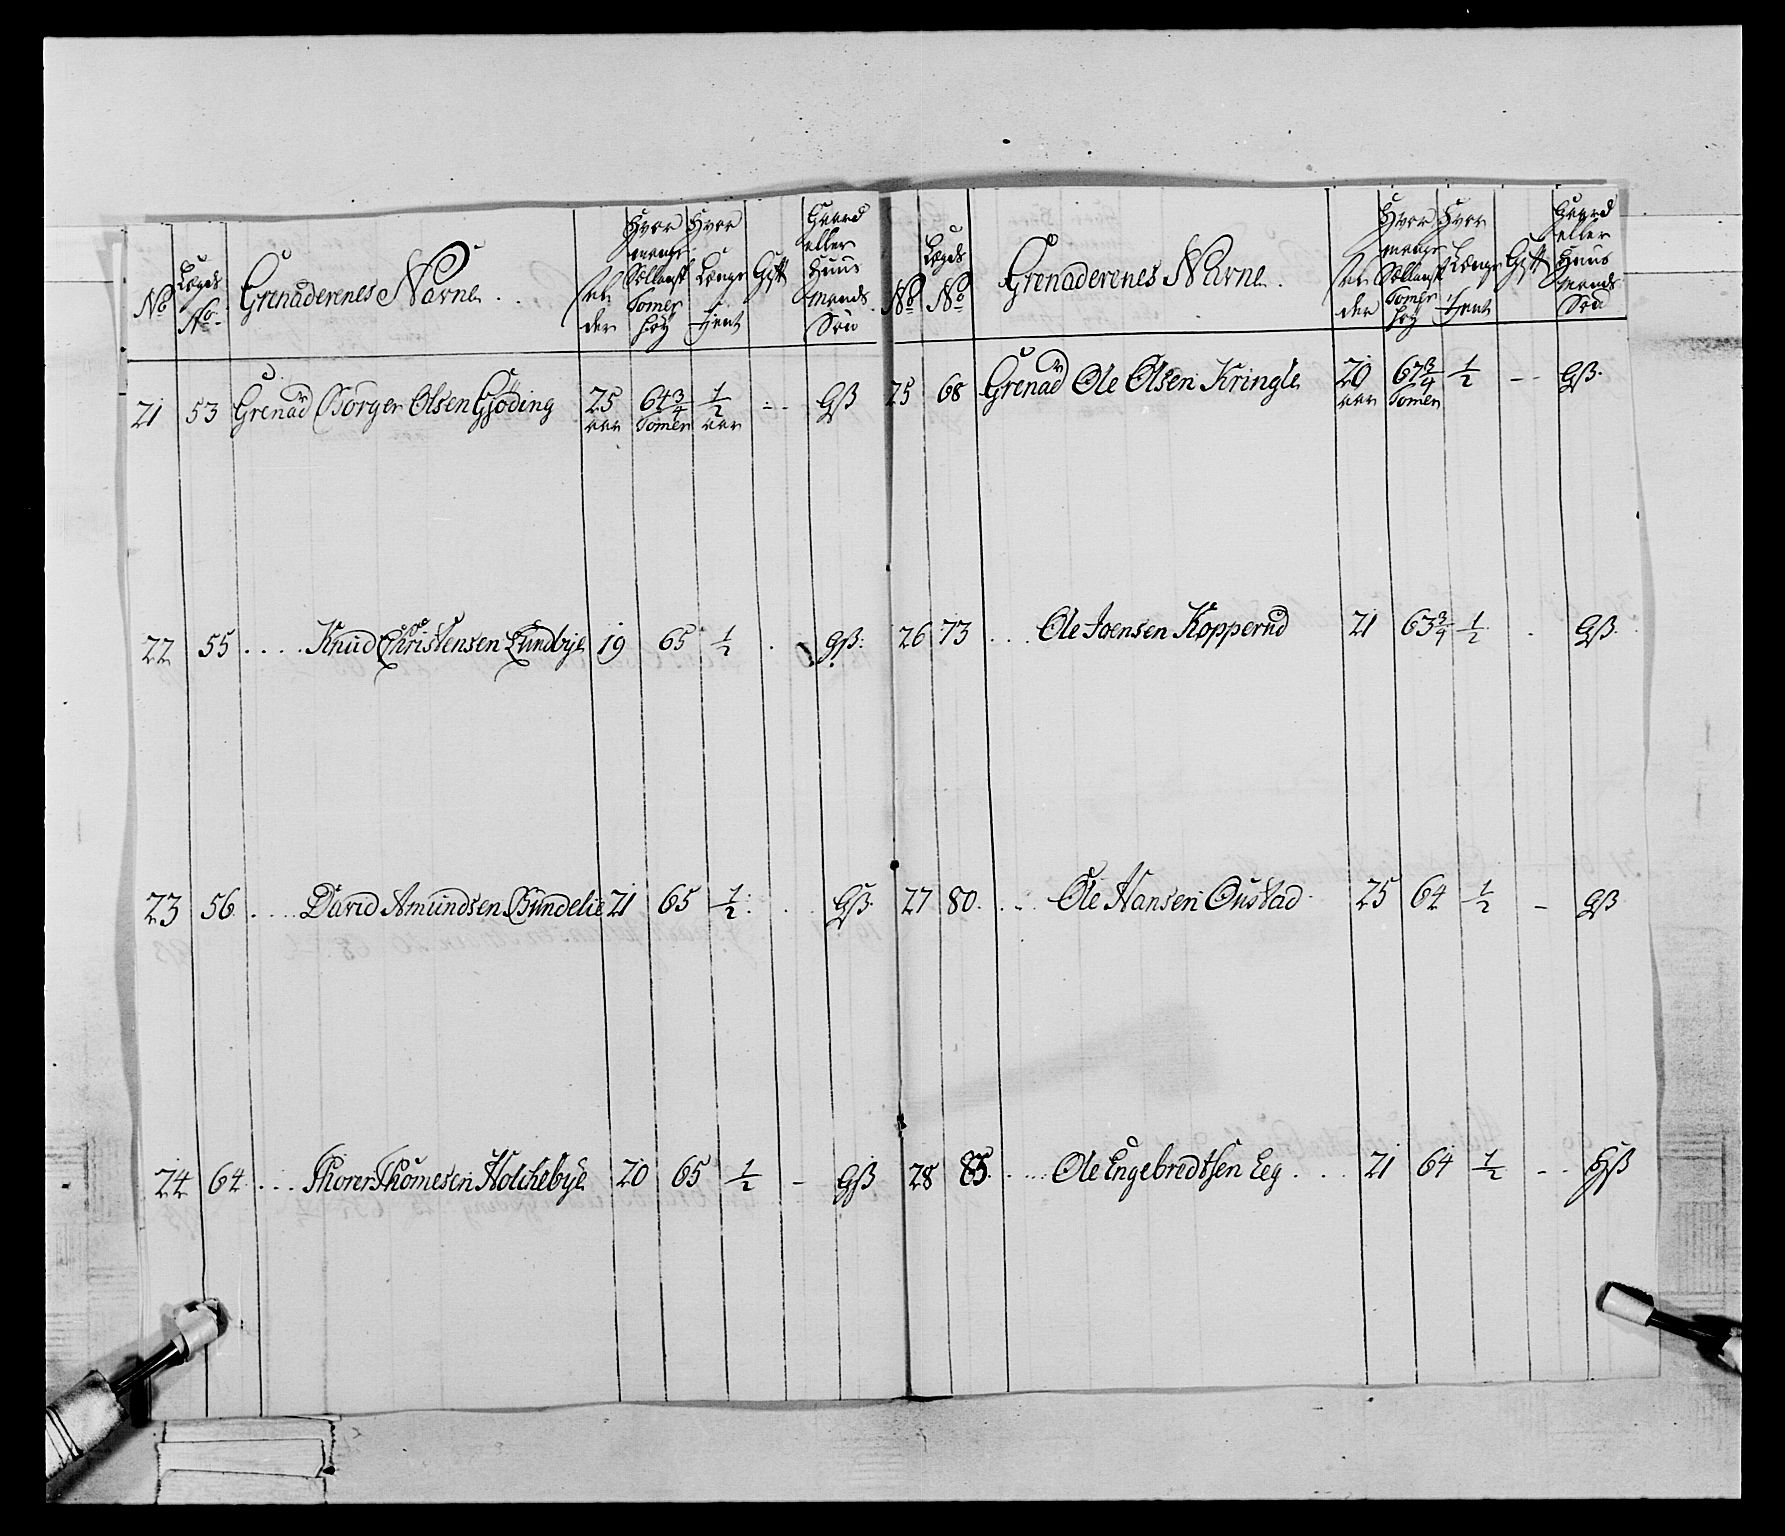 No
Lægds No
Grenaderenes Navne . .
Alder
Hvor mange Sollandsk Tomer høy
Hvor Længe tjent
Gift
Gaard eller Huus Mands Søn
21 53 Grenadr Børger Olsen Gjøding 25 aar 64¾ Tomer ½ aar -- GS
22 55 . . . . Knud Christensen Lundbye 19 65 ½ . GS.
23 56 . . . . David Amundsen Bundelie 21 65 ½ . . GS.
24 64 . . . Thorer Thomesen Holchebye 20 65 ½ - GS
No
Lægds No
Grenaderenes Navne .
Alder
Hvor mange Sollandsk Tomer høy
Hvor Længe tjent
Gift
Gaard eller Huus Mands Søn
25 68 Grenadr Ole Olsen Kringle 20 aar 67¾ Tomer ½ -- GS.
26 73 . . . Ole Joensen Kopperud 21 63¾ ½ . GS.
27 80 . . . Ole Hansen Oustad 25 64 ½ - GS
28 85 . . . . Ole Engebredtsen Eeg . . . 21 64 ½ -- HS